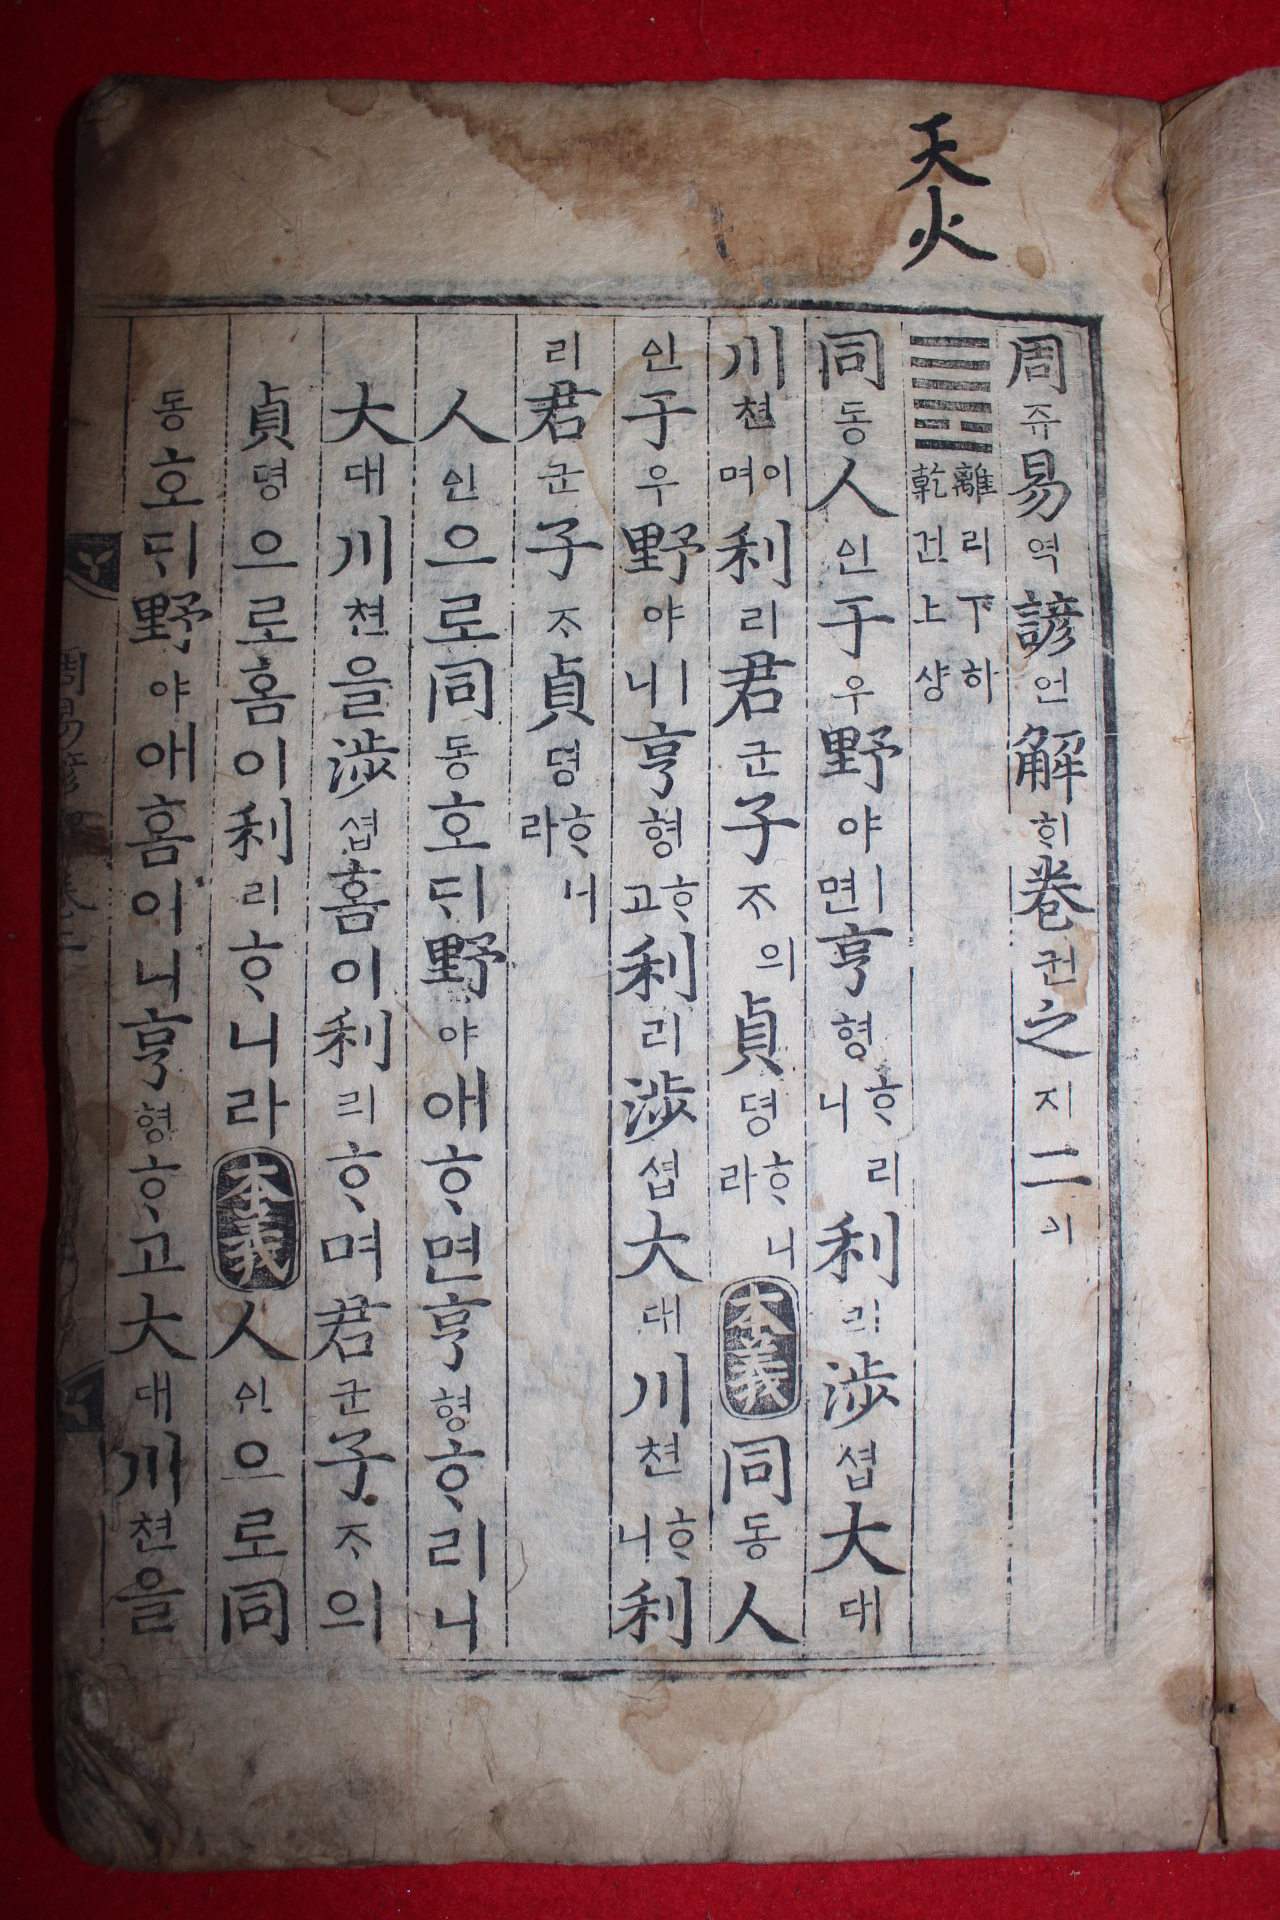 天火
周쥬易역諺언解ᄒᆡ卷권之지二이
䷌離리下하
乾건上샹
同동人인于우野야ㅣ면亨형ᄒᆞ리니利리涉셥大대
川쳔이며利리君군子ᄌᆞ의貞뎡ᄒᆞ니라本義同동人
인于우野야ㅣ니亨형ᄒᆞ고利리涉셥大대川쳔ᄒᆞ니利
리君군子ᄌᆞ貞뎡ᄒᆞ니라
人인으로同동호ᄃᆡ野야애ᄒᆞ면亨형ᄒᆞ리니
大대川쳔을涉셥홈이利리ᄒᆞ며君군子ᄌᆞ의
貞뎡으로홈이利리ᄒᆞ니라本義人인으로同
동호ᄃᆡ野야애홈이니亨형ᄒᆞ고大대川쳔을
周易諺解卷二